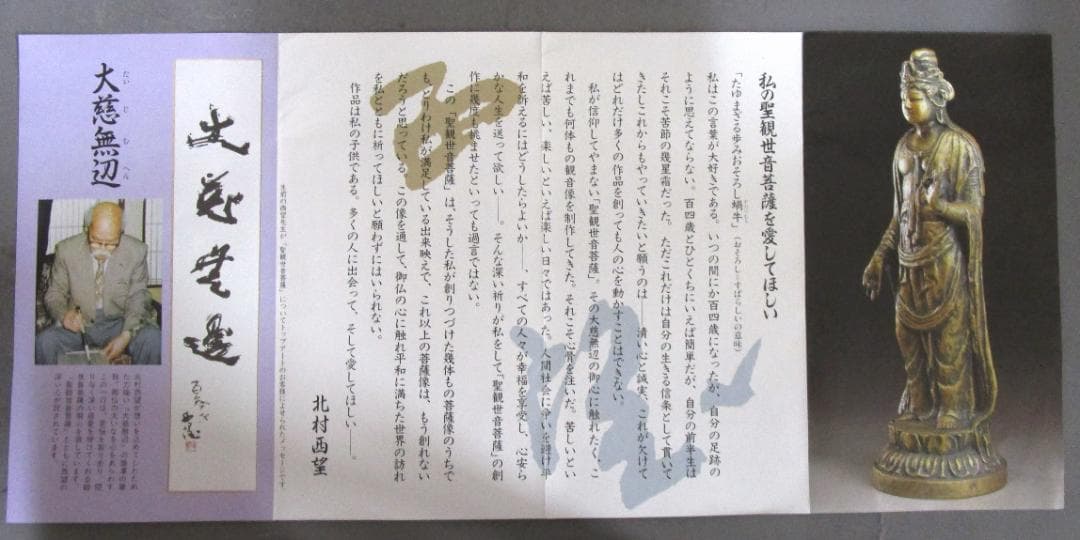 私の聖観世音菩薩を愛してほしい
「たゆまざる歩みおそろし蝸牛」（おそろし＝すばらしいの意味）
かたつむり
私はこの言葉が大好きである。いつの間にか百四歳になったが、自分の足跡の
ように思えてならない。百四歳とひとくちにいえば簡単だが、自分の前半生は
それこそ苦節の幾星霜だった。ただこれだけは自分の生きる信条として貫いて
きたしこれからもやっていきたいと願うのは――清い心と誠実、これが欠けて
はどれだけ多くの作品を創っても人の心を動かすことはできない。
私が信仰してやまない「聖観世音菩薩」。その大慈無辺の御心に触れたく、こ
れまでも何体もの観音像を制作してきた。それこそ心骨を注いだ。苦しいとい
えば苦しい、楽しいといえば楽しい日々ではあった。人間社会に争いを避け平
和を訴えるにはどうしたらよいか――、すべての人々が幸福を享受し、心安ら
かな人生を送って欲しい――。そんな深い祈りが私をして「聖観世音菩薩」の創
作に幾度も挑ませたといっても過言ではない。
この「聖観世音菩薩」は、そうした私が創りつづけた幾体もの菩薩像のうちで
も、とりわけ私が満足している出来映えで、これ以上の菩薩像は、もう創れない
だろうと思っている。この像を通して、御仏の心に触れ平和に満ちた世界の訪れ
を私とともに祈ってほしいと願わずにはいられない。
作品は私の子供である。多くの人に出会って、そして愛してほしい――。
北村西望
生前の西望先生が「聖観世音菩薩」についてトップアートのお客様によせられたメッセージです。
大慈無邊
西望
大慈無辺
たいじむへん